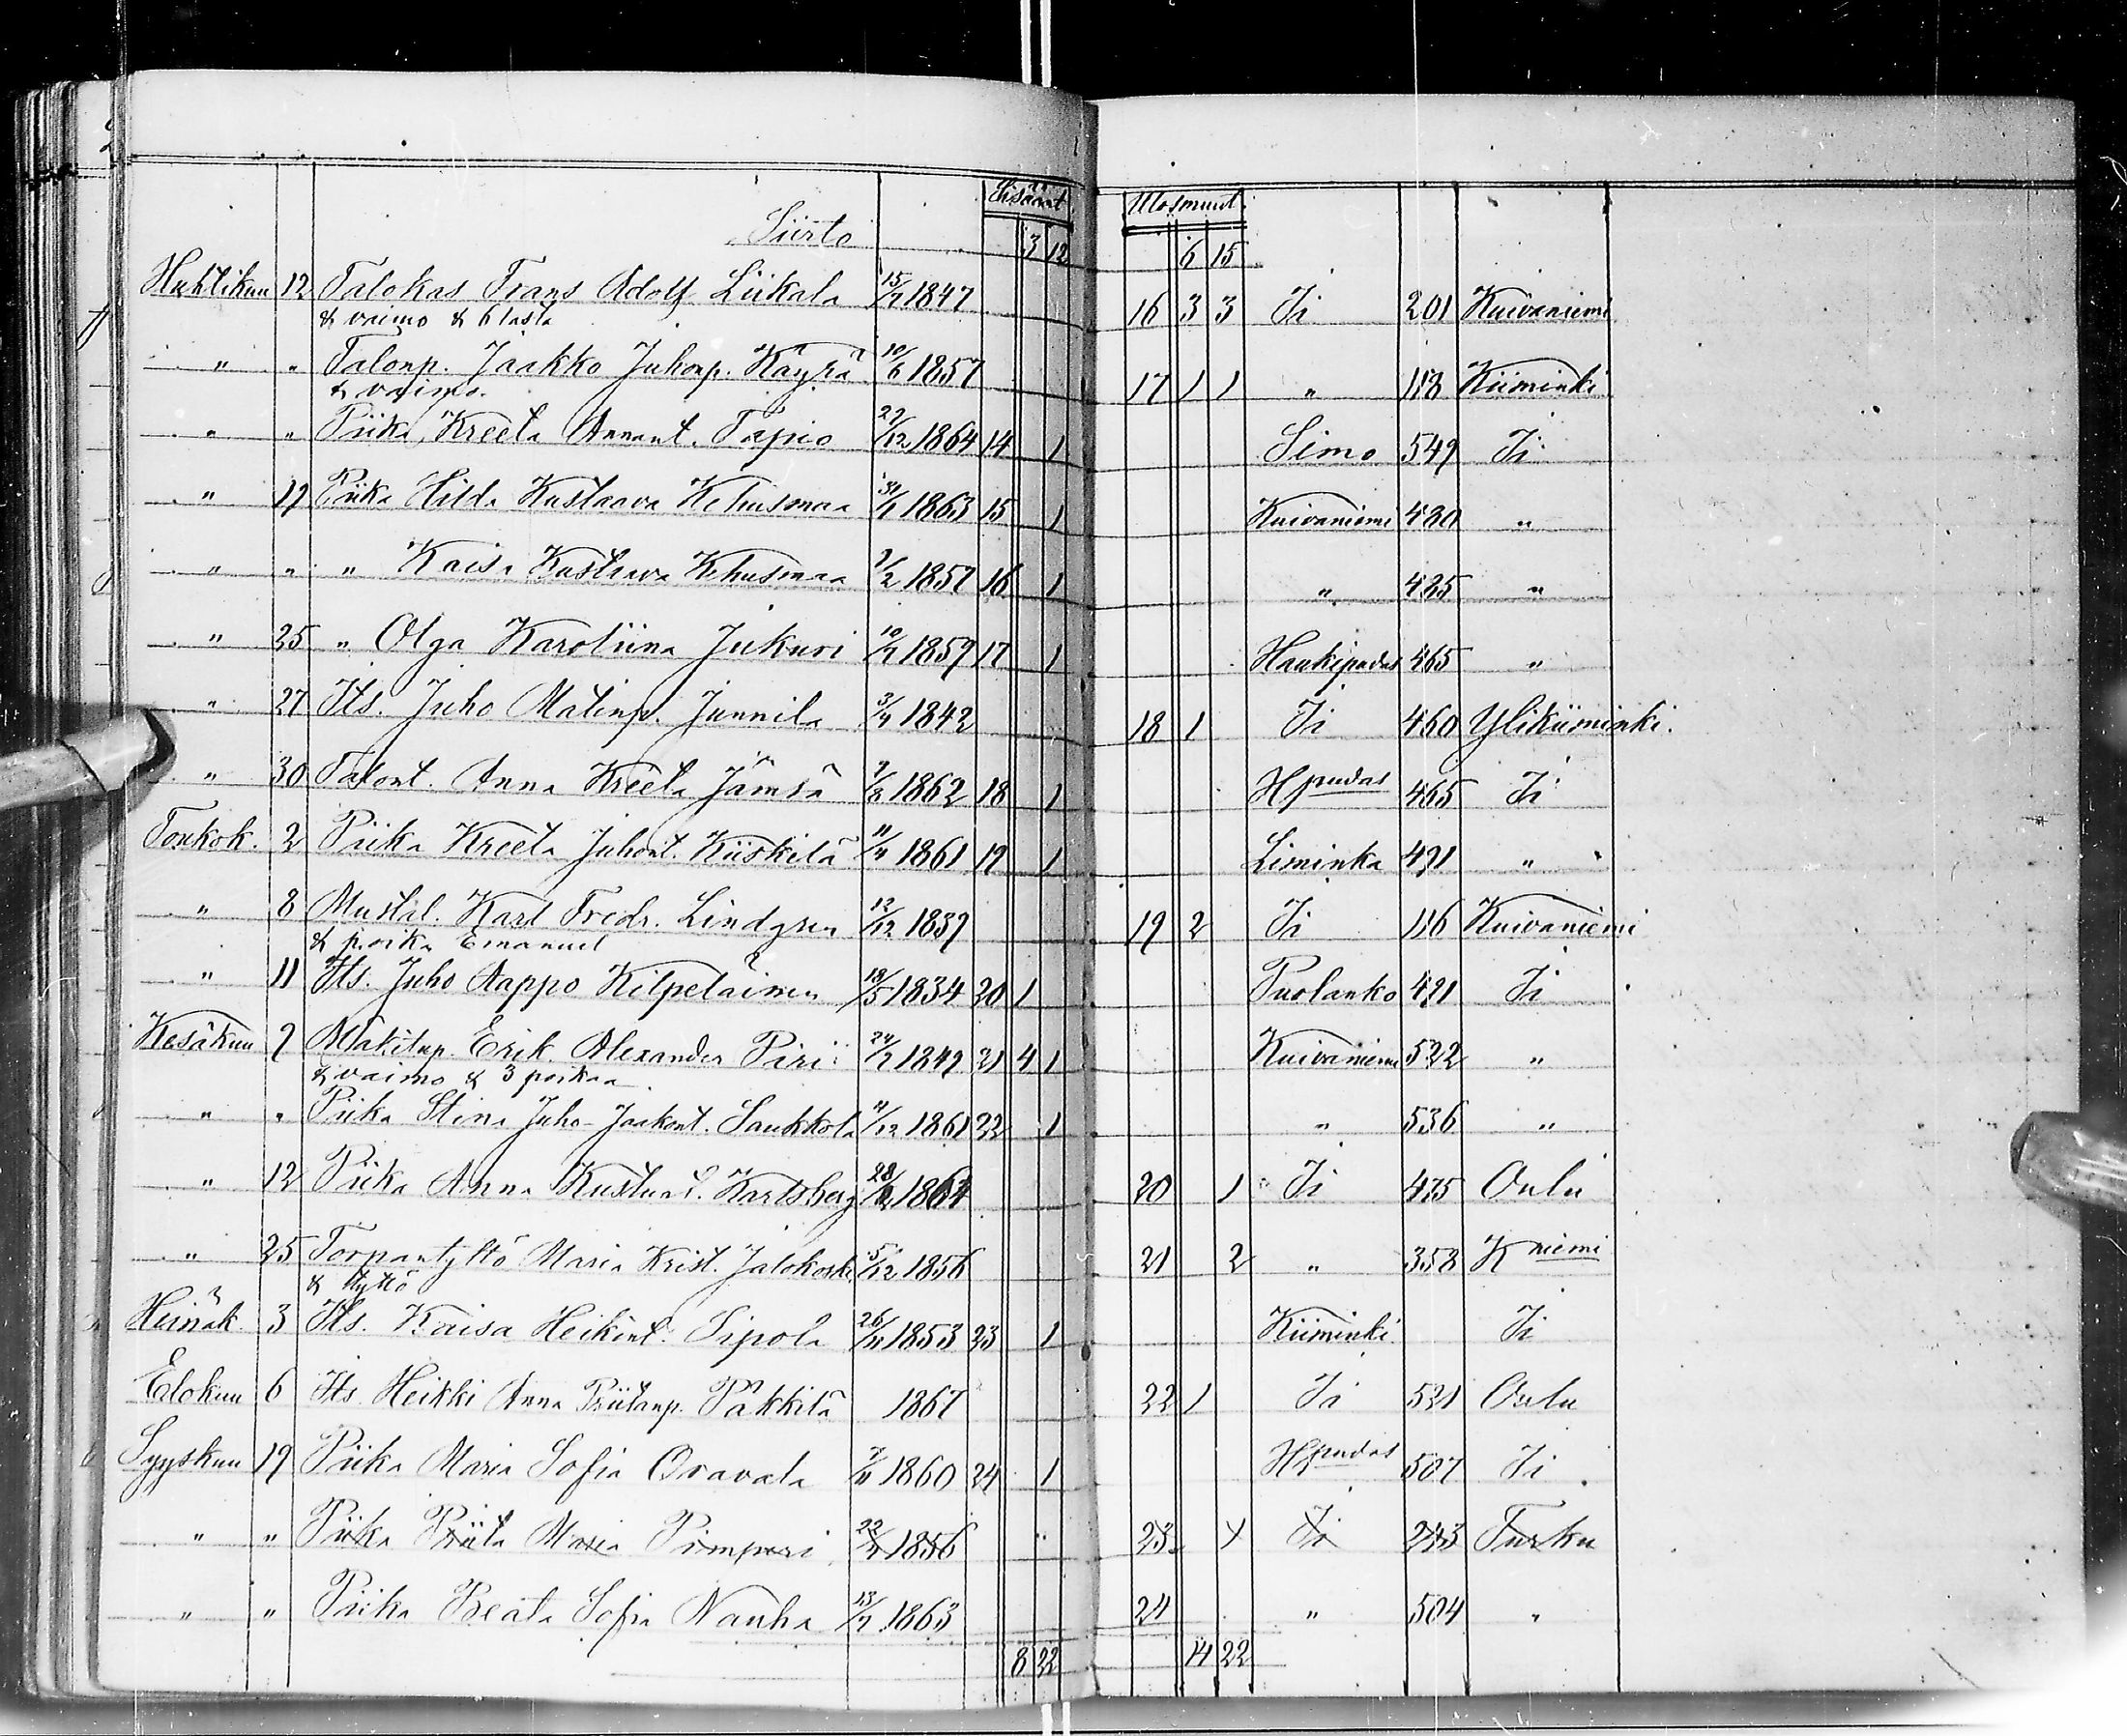 Sisäänt. Ulosmuut.
Siirto 3 12 6 15
Huhtikuu 12 Talokas Frans Adolf Liikala 15/7 1847 16 3 3 Ii 201 Kuivaniemi
& vaimo & 6 lasta
" " Talonp. Jaakko Juhonp. Käyrä 10/6 1857 17 1 1 " 118 Kiiminki
& vaimo.
" " Piika Kreeta Annant. Tapio 27/12 1864 14 1 Simo 549 Ii
" 19 Piika Hilda Kustaava Kehusmaa 31/1 1863 15 1 Kuivaniemi 480 "
" " " Kaisa Kustaava Kehusmaa 1/2 1857 16 1 " 485 "
" 25 " Olga Karoliina Jukuri 10/7 1859 17 1 Haukipudas 465 "
" 27 Its. Juho Matinp. Junnila 3/4 1842 18 1 Ii 460 Ylikiiminki.
" 30 Talont. Anna Kreeta Jämsä 7/8 1862 18 1 Hpudas 465 Ii
Toukok. 2 Piika Kreeta Juhont. Kiiskilä 11/4 1861 19 1 Liminka 491 "
" 8 Mustal. Karl Fredr. Lindgren 12/12 1839 19 2 Ii 116 Kuivaniemi
& poika Emanuel
" 11 Its. Juho Aappo Kilpeläinen 18/5 1834 20 1 Puolanko 491 Ii
Kesäkuu 7 Mäkitup. Erik Alexander Piri 24/7 1849 21 4 1 Kuivaniemi 522 "
& vaimo & 3 poikaa
" " Piika Stina Juho-Jaakont. Saukkola 11/12 1861 22 1 " 536 "
" 12 Piika Anna Kustaat. Karlsberg 28/12 1864 20 1 Ii 475 Oulu
" 25 Torpantyttö Maria Krist. Jalokoski 5/12 1856 21 2 " 358 Kniemi
& tyttö
Heinäk. 3 Its. Kaisa Heikint. Sipola 26/11 1853 23 1 Kiiminki Ii
Elokuu 6 Its. Heikki Anna Priitanp. Päkkilä 1867 22 1 Ii 521 Oulu
Syyskuu 19 Piika Maria Sofia Oravala 7/11 1860 24 1 Hpudas 507 Ii
" " Piika Priita Maria Pimperi 1856 23 1 Ii 243 Turku
" " Piika Beata Sofia Nauha 13/7 1863 24 " 504 "
8 22 14 22